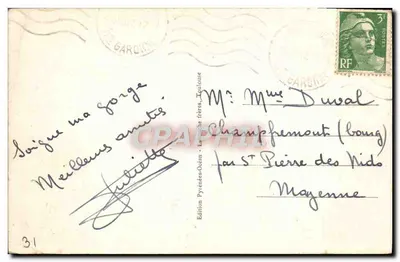 Soigne ma gorge
Meilleures amitiés
Juliette
31
Edition Pyrénées-Océan
frères, Toulouse
3F
RF
Mr Mme Duval
Champfremont (bourg)
par St Pierre des Nids
Mayenne
CPARAMA